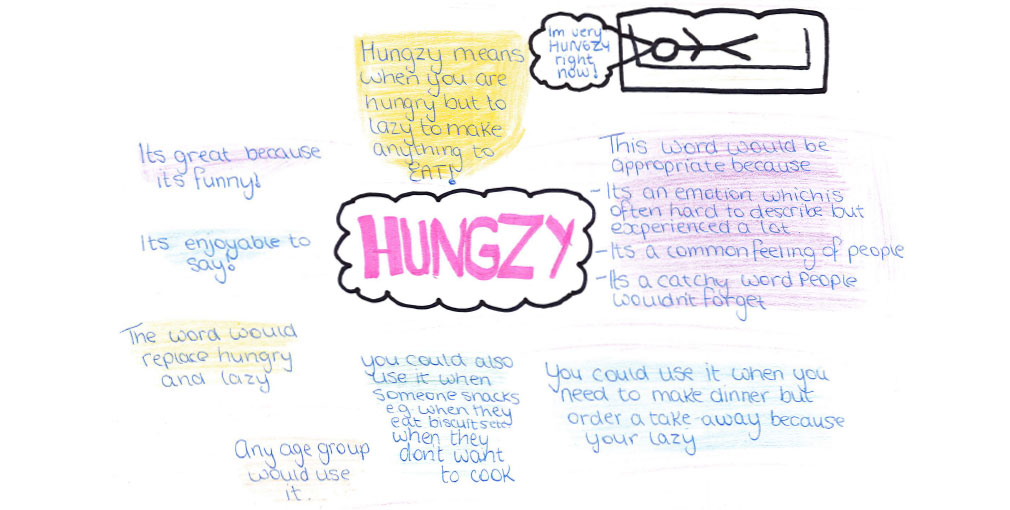 Hungzy means
when you are
hungry but to
lazy to make
anything to
EAT!
Im very
HUNGZY
right
now!
Its great because
its funny!
Its enjoyable to
say!
HUNGZY
This word would be
appropriate because
- Its an emotion which is
often hard to describe but
experienced a lot.
- Its a common feeling of people
- Its a catchy word People
wouldn't forget
The word would
replace hungry
and lazy
you could also
use it when
someone snacks
e.g. when they
eat biscuits etc
when they
dont want
to cook
You could use it when you
need to make dinner but
order a take-away because
your lazy
Any age group
would use
it.